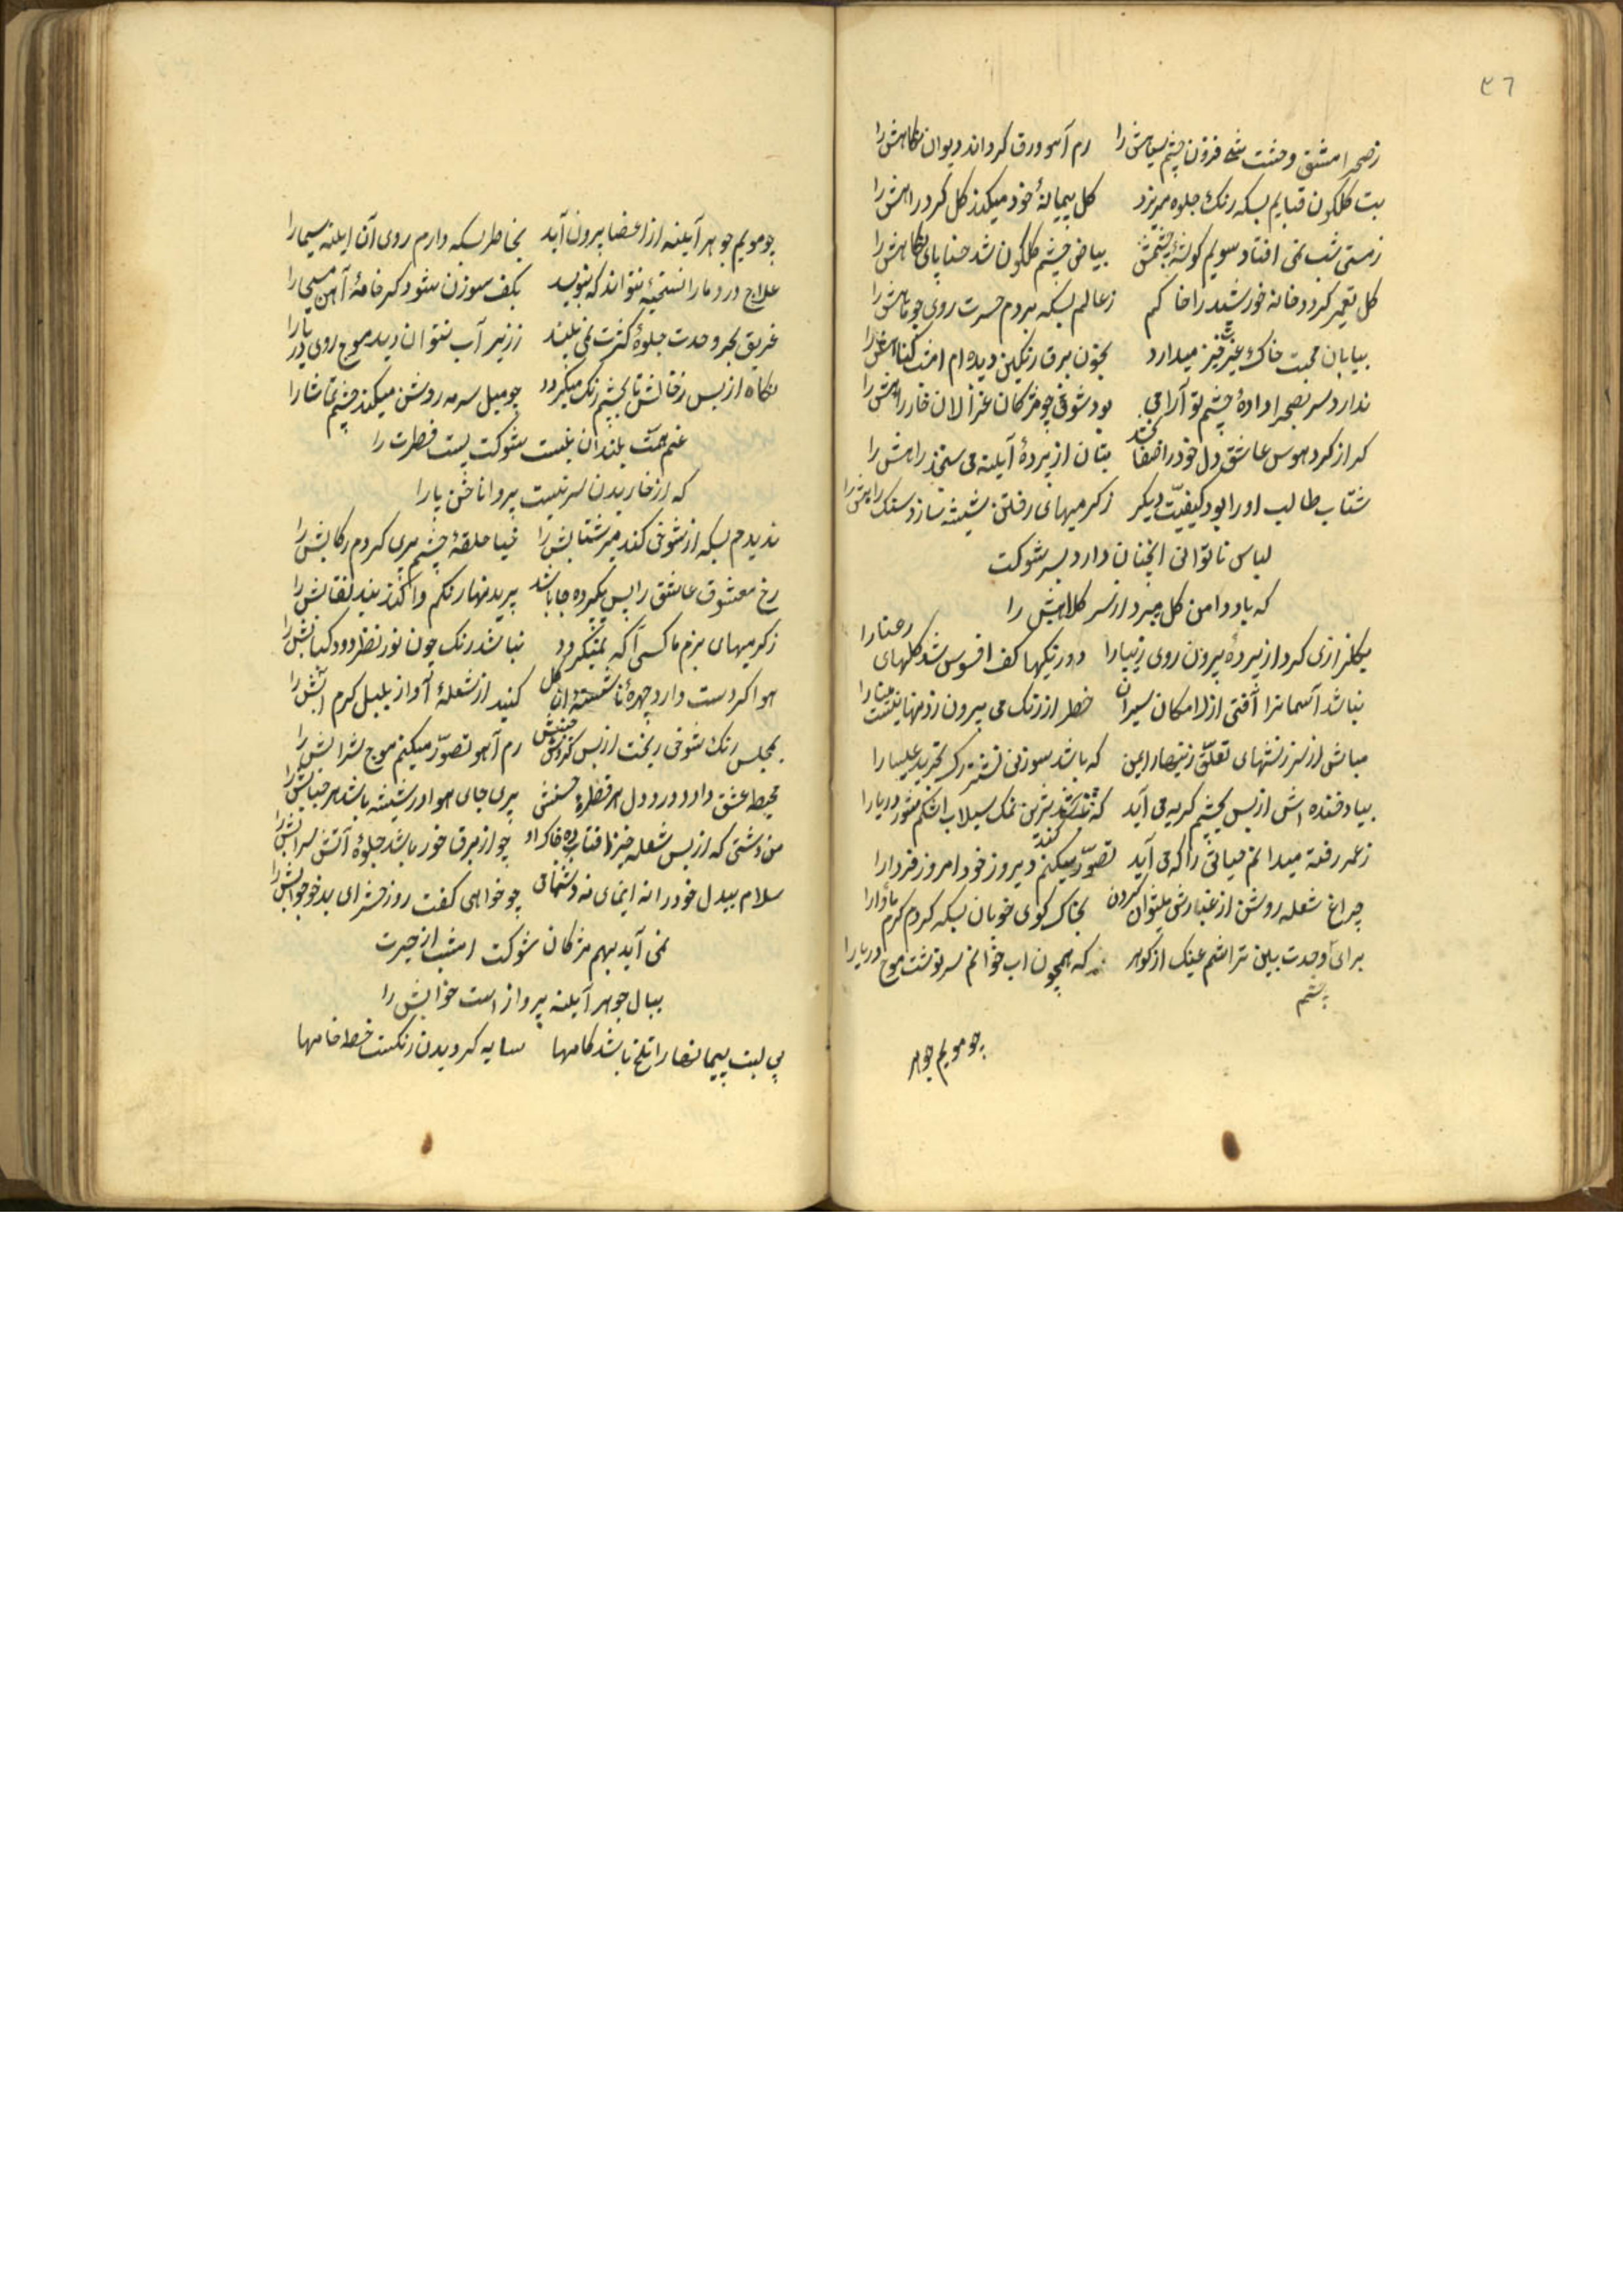 ٣٦
ز صحرا مشق وحشت شد فزون چشم سیاهش را رم آهو ورق کرداند دیوان نکاهش را
بت کلکون قبایم بسکه رنک جلوه میریزد کل پیمانهٔ خود میکند کل کرد راهش را
ز مستی شب نمی افتاد سویم کوشهٔ چشمش بیاض چشم کلکون شد حنا پای نکاهش را
کل تعمیر کردد خانه خورشید را خاکم ز عالم بسکه بردم حسرت روی چو ماهش را
بیابان محبت خاک خیز میدارد بخون برق رنکین دیده ام
ندارد سر بصحرا دادهٔ چشم تو آرامی بود شوق چو مژکان غزالان خار راهش را
کر از کرد هوس عاشق دل خود را صفا بخشد بتان از پردهٔ آیینه می راهش را
شتاب طالب او را بود کیفیت دیکر ز کرمیهای رفتن شیشه سازد سنک راهش را
لباس ناتوانی آنچنان دارد بسر شوکت
که باد دامن کل میبرد از سر کلاهش را
بکلزاری که کرد از پرده بیرون روی زیبا را دورنکیها کف افسوس شد کلهای رعنا را
نباشد آسمانرا آفتی از لامکان سیران خطر از رنک می بیرون زدنها نیست مینا را
مباش از سرزنشهای تعلق زینهار ایمن که باشد سوزنی نشتر رک تجرید عیسا را
بیاد خنده اش از بس بچشم کریه می آید که شیرین نمک سیلاب اشکم شور دریا را
ز عمر رفته میدانم حیاتی را که می آید تصور میکنم دیروز خود امروز فردا را
چراغ شعله روشن از غبارش میتوان کردن بخاک کوی خوبان بسکه کردم کرم مأوا را
برای وحدت بین تراشم عینک از کوهر که همچون آب خوانم سرنوشت موج دریا را
چشم
چو مویم جوهر
چو مویم جوهر آیینه از اعضا برون آید بخاطر بسکه دارم روی آن آیینه سیما را
علاج درد ما را نسخهٔ نتواند که بنویسد بکف سوزن شود کر خامهٔ آهن مسیحا را
غریق بحر وحدت جلوهٔ کثرت نمی بیند ز زیر آب نتوان دید موج روی دریا را
نکاه از بس ز خالش تا بچشم رنک میکیرد چو میل سرمه روشن میکند چشم تماشا را
غم همت بلندان نیست شوکت پست فطرت را
که از خاریدن سر نیست پروا ناخن پا را
ندیدم بسکه از شوخی کند میر شتابش را خیا حلقهٔ چشم پری کردم رکابش را
رخ معشوق عاشق را پس یکپرده جا باشد پرید نهای رنکم واکند بند نقابش را
ز کرمیهای بزم ما کسی آکه نمیکردد نباشد رنک چون نور نظر دود کبابش را
هوا کر دست دارد چهرهٔ ناشسته ان کل کنید از شعلهٔ آواز بلبل کرم آبش را
بمجلس رنک شوخی ریخت از بس کردش چشمش رم آهو تصور میکنم موج شرابش را
محیط عشق دارد در دل هر قطرهٔ حسنش پری جای هوا در شیشه باشد هر حبابش را
من و دشتی که از بس شعله خیز افتاده خاک او چو از برق خور باشد جلوهٔ آتش سرابش را
سلام بیدل خود را نه ایمای نه دشنامی چو خواهی کفت روز حشر ای بدخو جوابش را
نمی آید بهم مژکان شوکت امشب از حیرت
ببال جوهر آیینه پرواز است خوابش را
بی لبت پیمانها را تلخ باشد کامها سایه کردیدن رنکست خط جامها